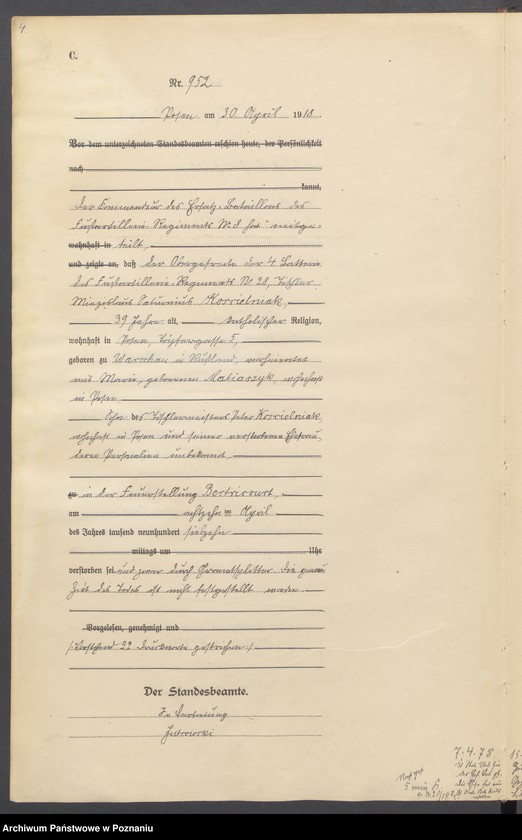 4
C.
Nr. 952
Posen am 30 April 1918.
Vor dem unterzeichneten Standesbeamten erschien heute, der Persönlichkeit
nach
kannt,
Der Commandeur des Ersatz-Bataillons des
Fußartillerie Regiments No 8 hat mitge-
wohnhaft in teilt,
und zeigte an, daß der Obergefreite der 4 Batterie
des Fußartillerie-Regiments No 28, Tischler
Korcielniak,
39 Jahre alt, katholischer Religion,
wohnhaft in Posen, 5,
geboren zu Warschau in Rußland, verheiratet
mit Marie, geborenen Matiaszyk, wohnhaft
in Posen
Sohn des Tischlermeisters Peter Korcielniak,
wohnhaft in Posen und seiner verstorbenen Ehefrau,
deren Personalien unbekannt,
zu in der Feuerstellung Bertricourt,
am achtzehnten April
des Jahres tausend neunhundert siebzehn
mittags um Uhr
verstorben sei und zwar durch Granatsplitter. Die genaue
Zeit des Todes ist nicht festgestellt worden.
Vorgelesen, genehmigt und
(Vorstehend 22 Druckworte gestrichen.)
Der Standesbeamte.
In Vertretung
7.4.78
Archiwum Państwowe w Poznaniu